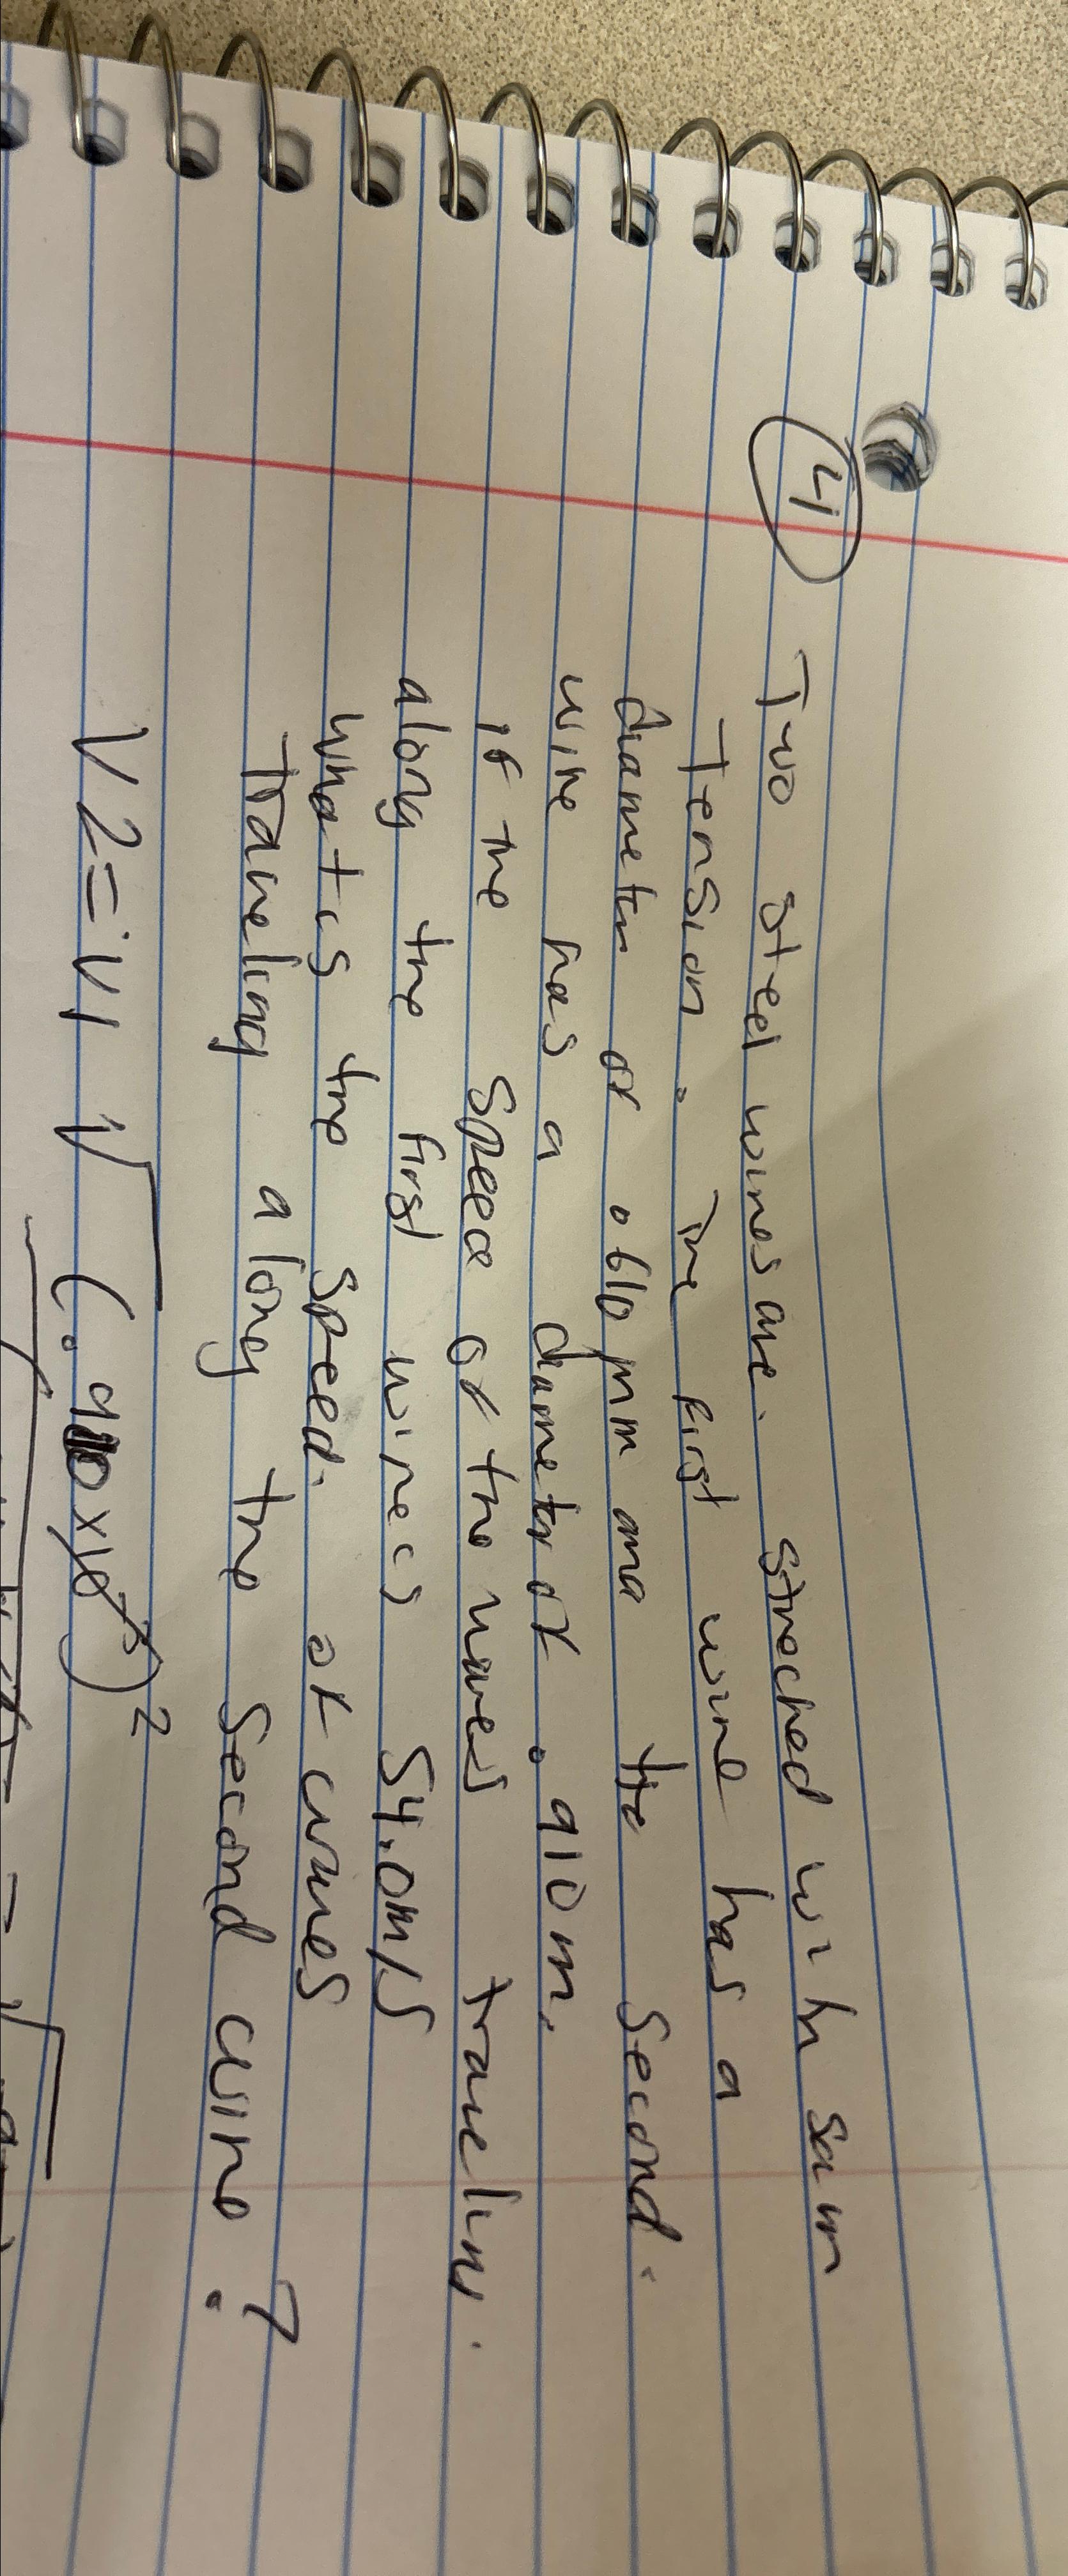 4
Two steel wires are. streched with sam
Tension. The first wire has a
diameter of .610 mm and the second.
wire has a diameter of .910 m,
if the speed of the waves traveling.
along the first wire is 54.0 m/s
what is the speed. of waves
Traveling along the second wire?
V2 = V1 √ (.910x10⁻³)²